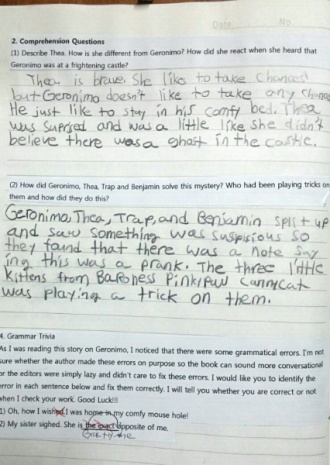 Date. No
2. Comprehension Questions
(1) Describe Thea. How is she different from Geronimo? How did she react when she heard that
Geronimo was at a frightening castle?
Thea is brave. She like to take chances
but Geronimo doesn't like to take any chance
He just like to stay in his comfy bed. Thea
was Suprised and was a little like she didn't
believe there was a ghost in the castle.
(2) How did Geronimo, Thea, Trap and Benjamin solve this mystery? Who had been playing tricks on
them and how did they do this?
Geronimo, Thea, Trap, and Benjamin split up
and saw something was suspicious so
they found that there was a note say
ing this was a prank. The three little
kittens from Baroness Pinkypaw Cannycat
was playing a trick on them.
4. Grammar Trivia
As I was reading this story on Geronimo, I noticed that there were some grammatical errors. I'm not
sure whether the author made these errors on purpose so the book can sound more conversational
or the editors were simply lazy and didn't care to fix these errors. I would like you to identify the
error in each sentence below and fix them correctly. I will tell you whether you are correct or not
when I check your work. Good Luck!!!
1) Oh, how I wished I was home in my comfy mouse hole!
2) My sister sighed. She is the exact opposite of me.